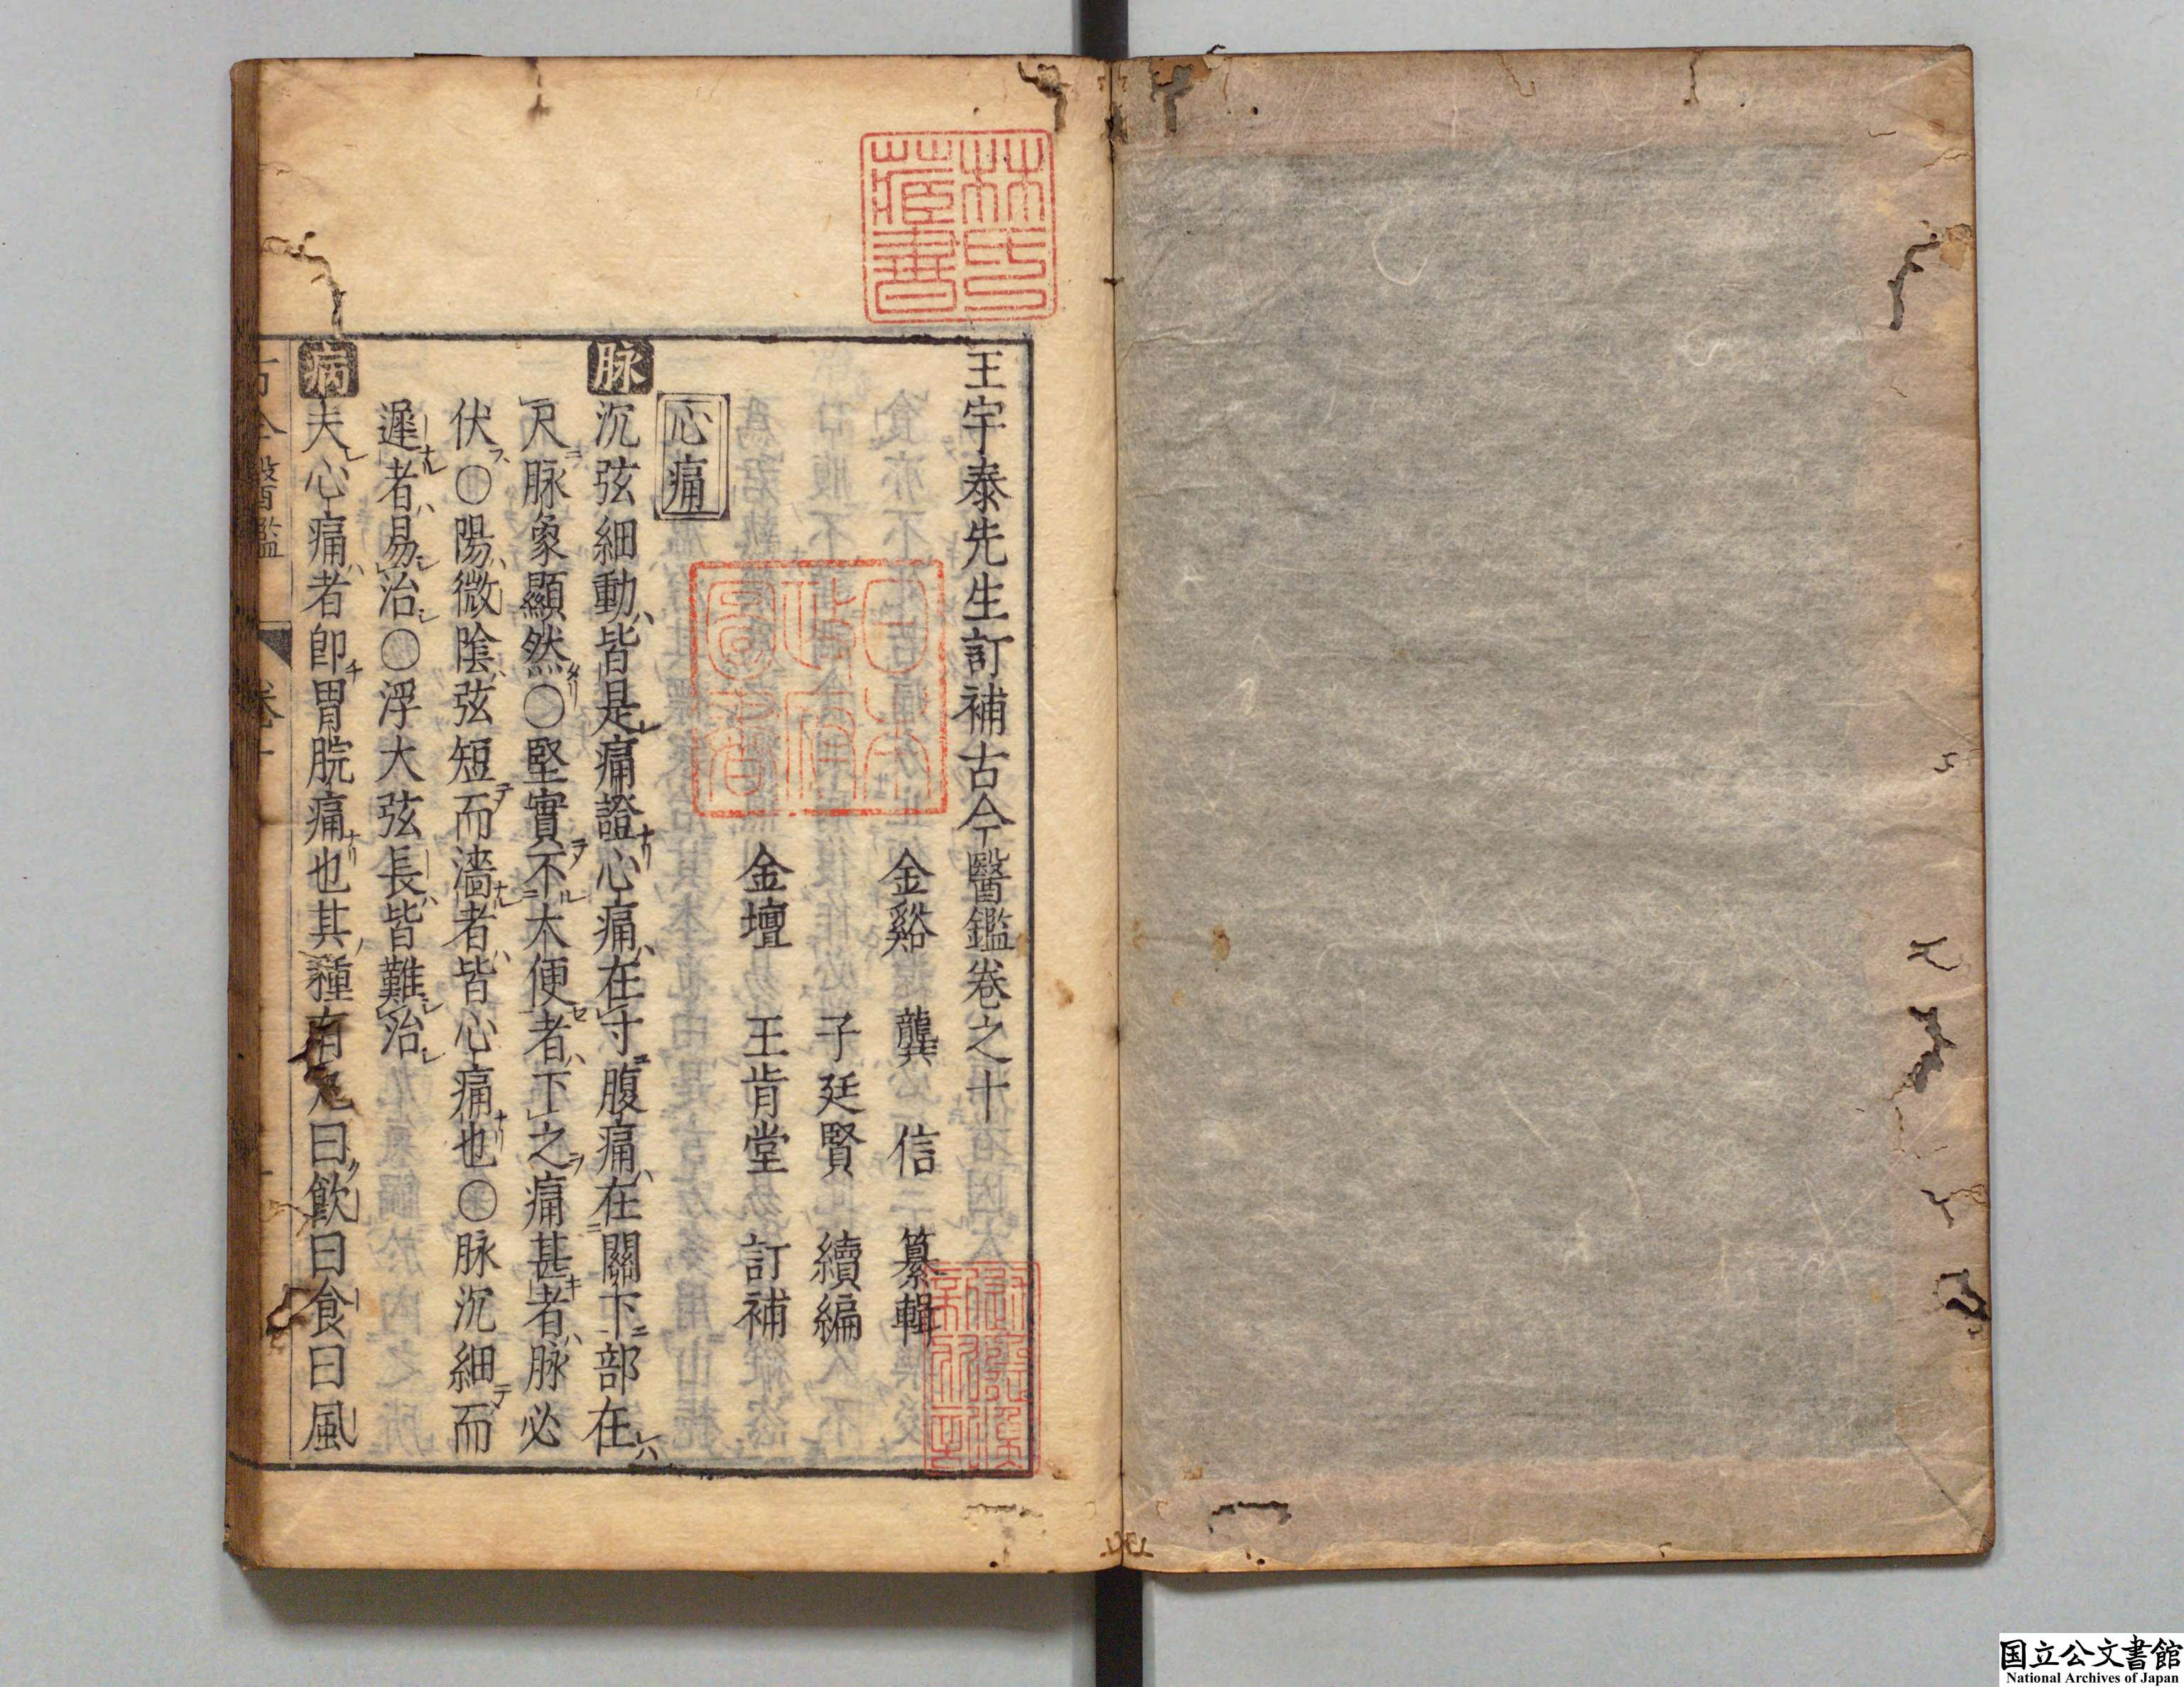 林氏藏書
王宇泰先生訂補古今醫鑑卷之十
金谿　龔　信　纂輯
子廷賢　續編
金壇　王肯堂　訂補
日本政府圖書
心痛
脉　沉弦細動皆是痛證心痛在寸腹痛在關下部在
尺脉象顯然○堅實不大便者下之痛甚者脉必
伏○陽微陰弦短而濇者皆心痛也○脉沉細而
遲者易治○浮大弦長皆難治
病　夫心痛者卽胃脘痛也其種有九曰飮曰食曰風
古今醫鑑　卷十
国立公文書館
National Archives of Japan